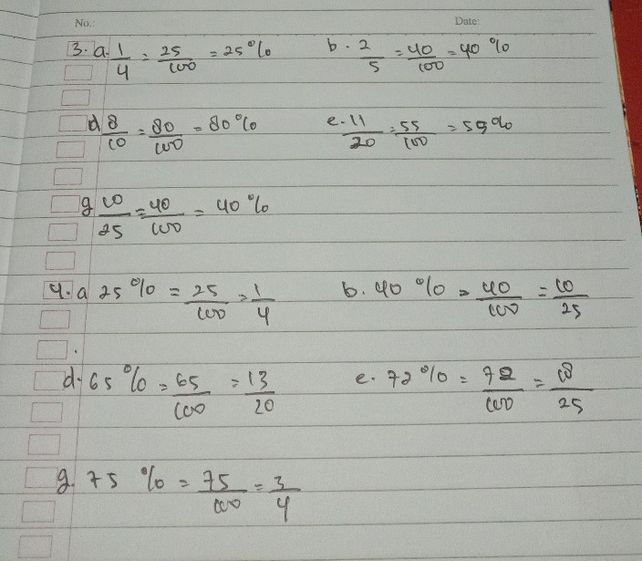 No.: Date:
3. a. 1/4 = 25/100 = 25% b. 2/5 = 40/100 = 40%
d 8/10 = 80/100 = 80% e. 11/20 = 55/100 = 55%
g 10/25 = 40/100 = 40%
4. a 25% = 25/100 = 1/4 b. 40% = 40/100 = 10/25
d. 65% = 65/100 = 13/20 e. 72% = 72/100 = 18/25
g. 75% = 75/100 = 3/4